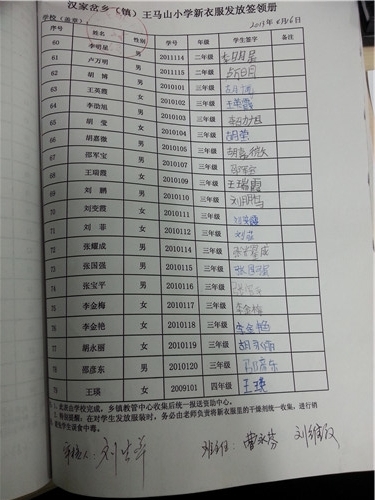 汉家岔乡（镇）王马山小学新衣服发放签领册
学校（盖章）： 2013年4月16日
序号 姓名 性别 学号 年级 学生签字 备注
60 李明星 男 2011114 二年级 李明星
61 卢万明 男 2011115 二年级
62 胡博 男 2010101 三年级
63 王英霞 女 2010102 三年级 王英霞
64 李劭旭 男 2010103 三年级
65 胡莹 女 2010104 三年级 胡莹
66 胡嘉微 男 2010105 三年级
67 邵军宝 男 2010107 三年级
68 王瑞霞 女 2010109 三年级 王瑞霞
69 刘鹏 男 2010110 三年级 刘鹏
70 刘变霞 女 2010111 三年级 刘变霞
71 刘菲 女 2010112 三年级 刘菲
72 张耀成 男 2010114 三年级 张耀成
73 张国强 男 2010115 三年级 张国强
74 张宝平 男 2010116 三年级 张宝平
75 李金梅 女 2010117 三年级 李金梅
76 李金艳 女 2010118 三年级 李金艳
77 胡永丽 女 2010119 三年级 胡永丽
78 邵彦东 男 2010120 三年级 邵彦东
79 王瑛 女 2009101 四年级 王瑛
：1、此表由学校完成，乡镇教管中心收集后统一报送资助中心。
2、特别提醒：在对学生发放服装时，务必由老师负责将新衣服里的干燥剂统一收集，进行销
，避免学生误食中毒。